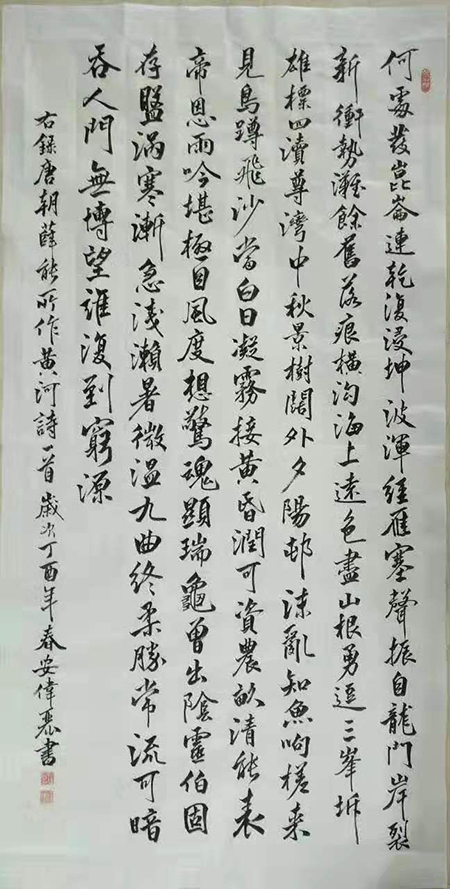 何處發崑崙連乾復浸坤波渾經雁塞聲振自龍門岸裂
新衝勢灘餘舊落痕橫沟海上遠色盡山根勇逗三峯坼
雄標四瀆尊灣中秋景樹闊外夕陽邨沫亂知魚响槎来
見鳥蹲飛沙當白日凝霧接黃昏潤可資農畝清能表
帝恩雨吟堪極目風度想驚魂顯瑞龜曾出陰靈伯固
存盤渦寒漸急淺瀨暑微温九曲終柔勝常流可暗
吞人門無博望誰復到窮源
右錄唐朝薛能所作黃河詩一首歲次丁酉年春安偉恭書